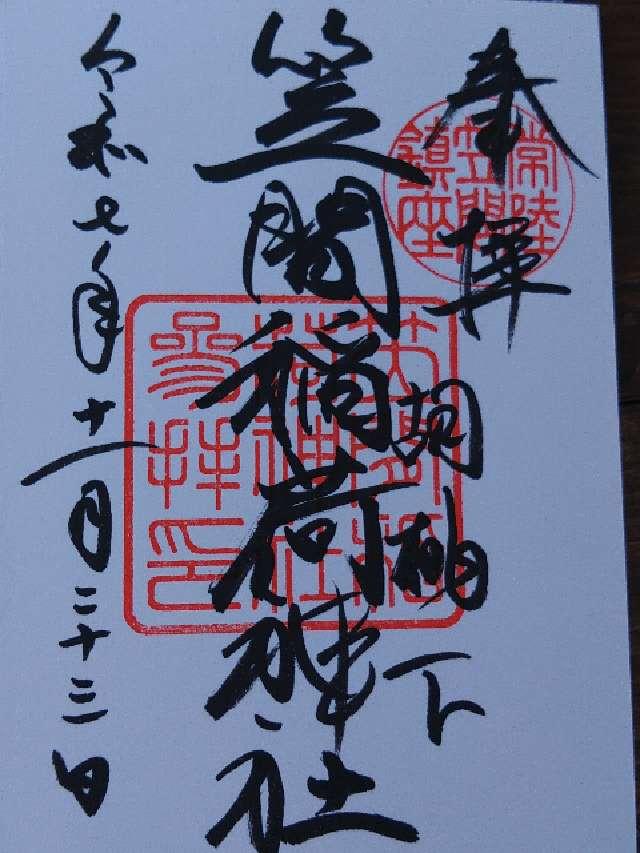 奉拝
常陸
笠間
鎮座
胡桃下
笠間稲荷神社
笠間稲
荷神社
参拝印
令和七年十一月二十三日